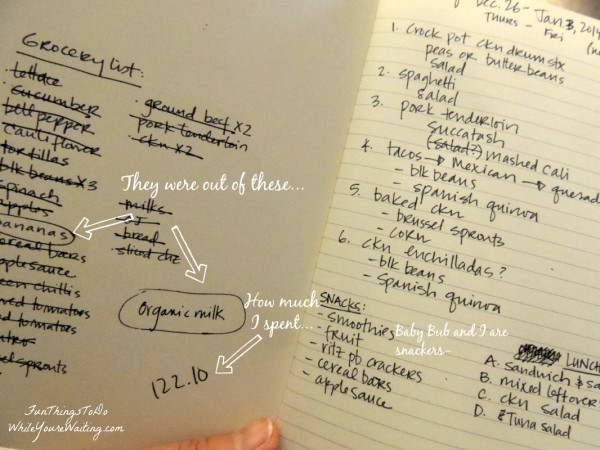 Grocery List:
· lettuce
· cucumber
· bell pepper
cauliflower
tortillas
blk beans x3
spinach
apples
bananas
cereal bars
applesauce
green chillis
tomatoes
tomatoes
sprouts
· ground beef x2
· pork tenderloin
· ckn x2
They were out of these...
· milks
· OJ
· bread
· sliced che
Organic milk
How much
I spent...
122.10
FunThingsToDo
WhileYoureWaiting.com
Dec. 26 - Jan 3, 2014
Thurs - Fri
1. crock pot ckn drumstx
peas or butterbeans
salad
2. spaghetti
salad
3. pork tenderloin
succatash
(salad?) mashed cali
4. tacos → Mexican → quesad
- blk beans
- spanish quinoa
5. baked ckn
- brussel sprouts
- corn
6. ckn enchilladas?
- blk beans
- spanish quinoa
SNACKS:
- smoothies
- fruit
- ritz pb crackers
- cereal bars
- applesauce
Baby Bub and I are
snackers~
LUNCH
A. sandwich & s
B. mixed leftover
C. ckn salad
D. Tuna salad